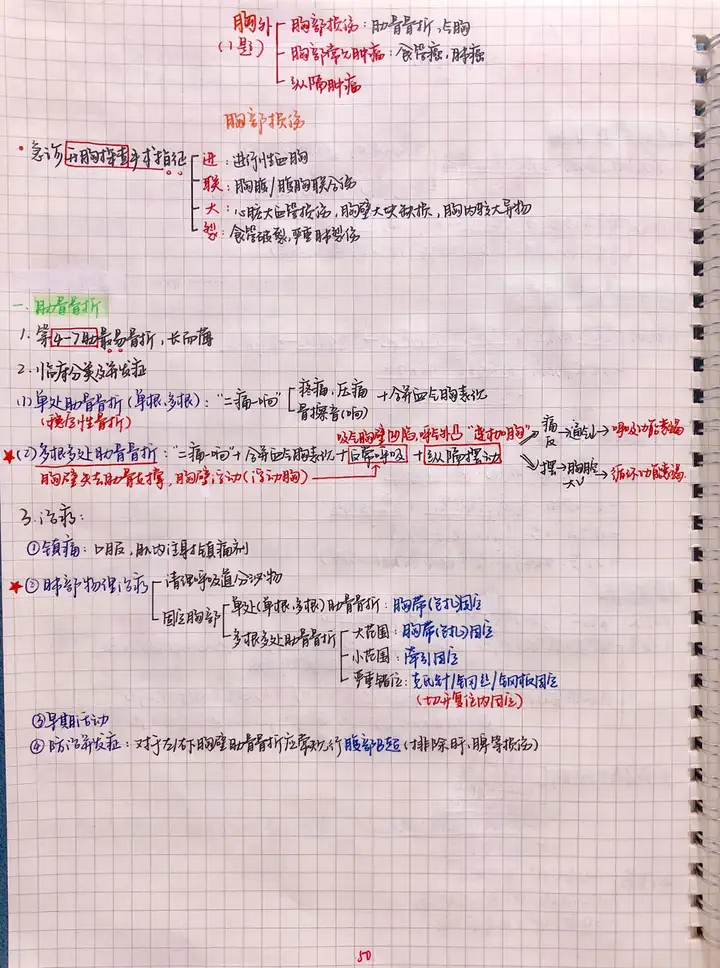 胸外 胸部损伤：肋骨骨折，气胸
(1题) 胸部常见肿瘤：食管癌，肺癌
纵隔肿瘤
胸部损伤
急诊开胸探查手术指征 进：进行性血胸
联：胸腹/腹胸联合伤
大：心脏大血管损伤，胸壁大块缺损，胸内存大异物
裂：食管破裂，严重肺裂伤
一.肋骨骨折
1.第4-7肋最易骨折，长而薄
2.临床分类及并发症
(1)单处肋骨骨折(单根、多根)："二痛一响" 疼痛，压痛 +合并血气胸表现
(稳定性骨折) 骨擦音(响)
吸气胸壁凹陷，呼气外凸"连枷胸" 痛 通气↓→呼吸功能衰竭
反
★(2)多根多处肋骨骨折："二痛一响+合并血气胸表现+反常呼吸+纵隔摆动
摆→胸腔 →循环功能衰竭
胸壁失去肋骨支撑，胸壁浮动(浮动胸)
3.治疗：
①镇痛：口服，肌内注射镇痛剂
★②肺部物理治疗 清理呼吸道分泌物
固定胸部 单处(单根、多根)肋骨骨折：胸带(包扎)固定
多根多处肋骨骨折 大范围：胸带(包扎)固定
小范围：牵引固定
严重错位：克氏针/钢丝/钢板固定
(切开复位内固定)
③早期活动
④防治并发症：对于左/右下胸壁肋骨骨折应常规行腹部B超(排除肝、脾等损伤)
50